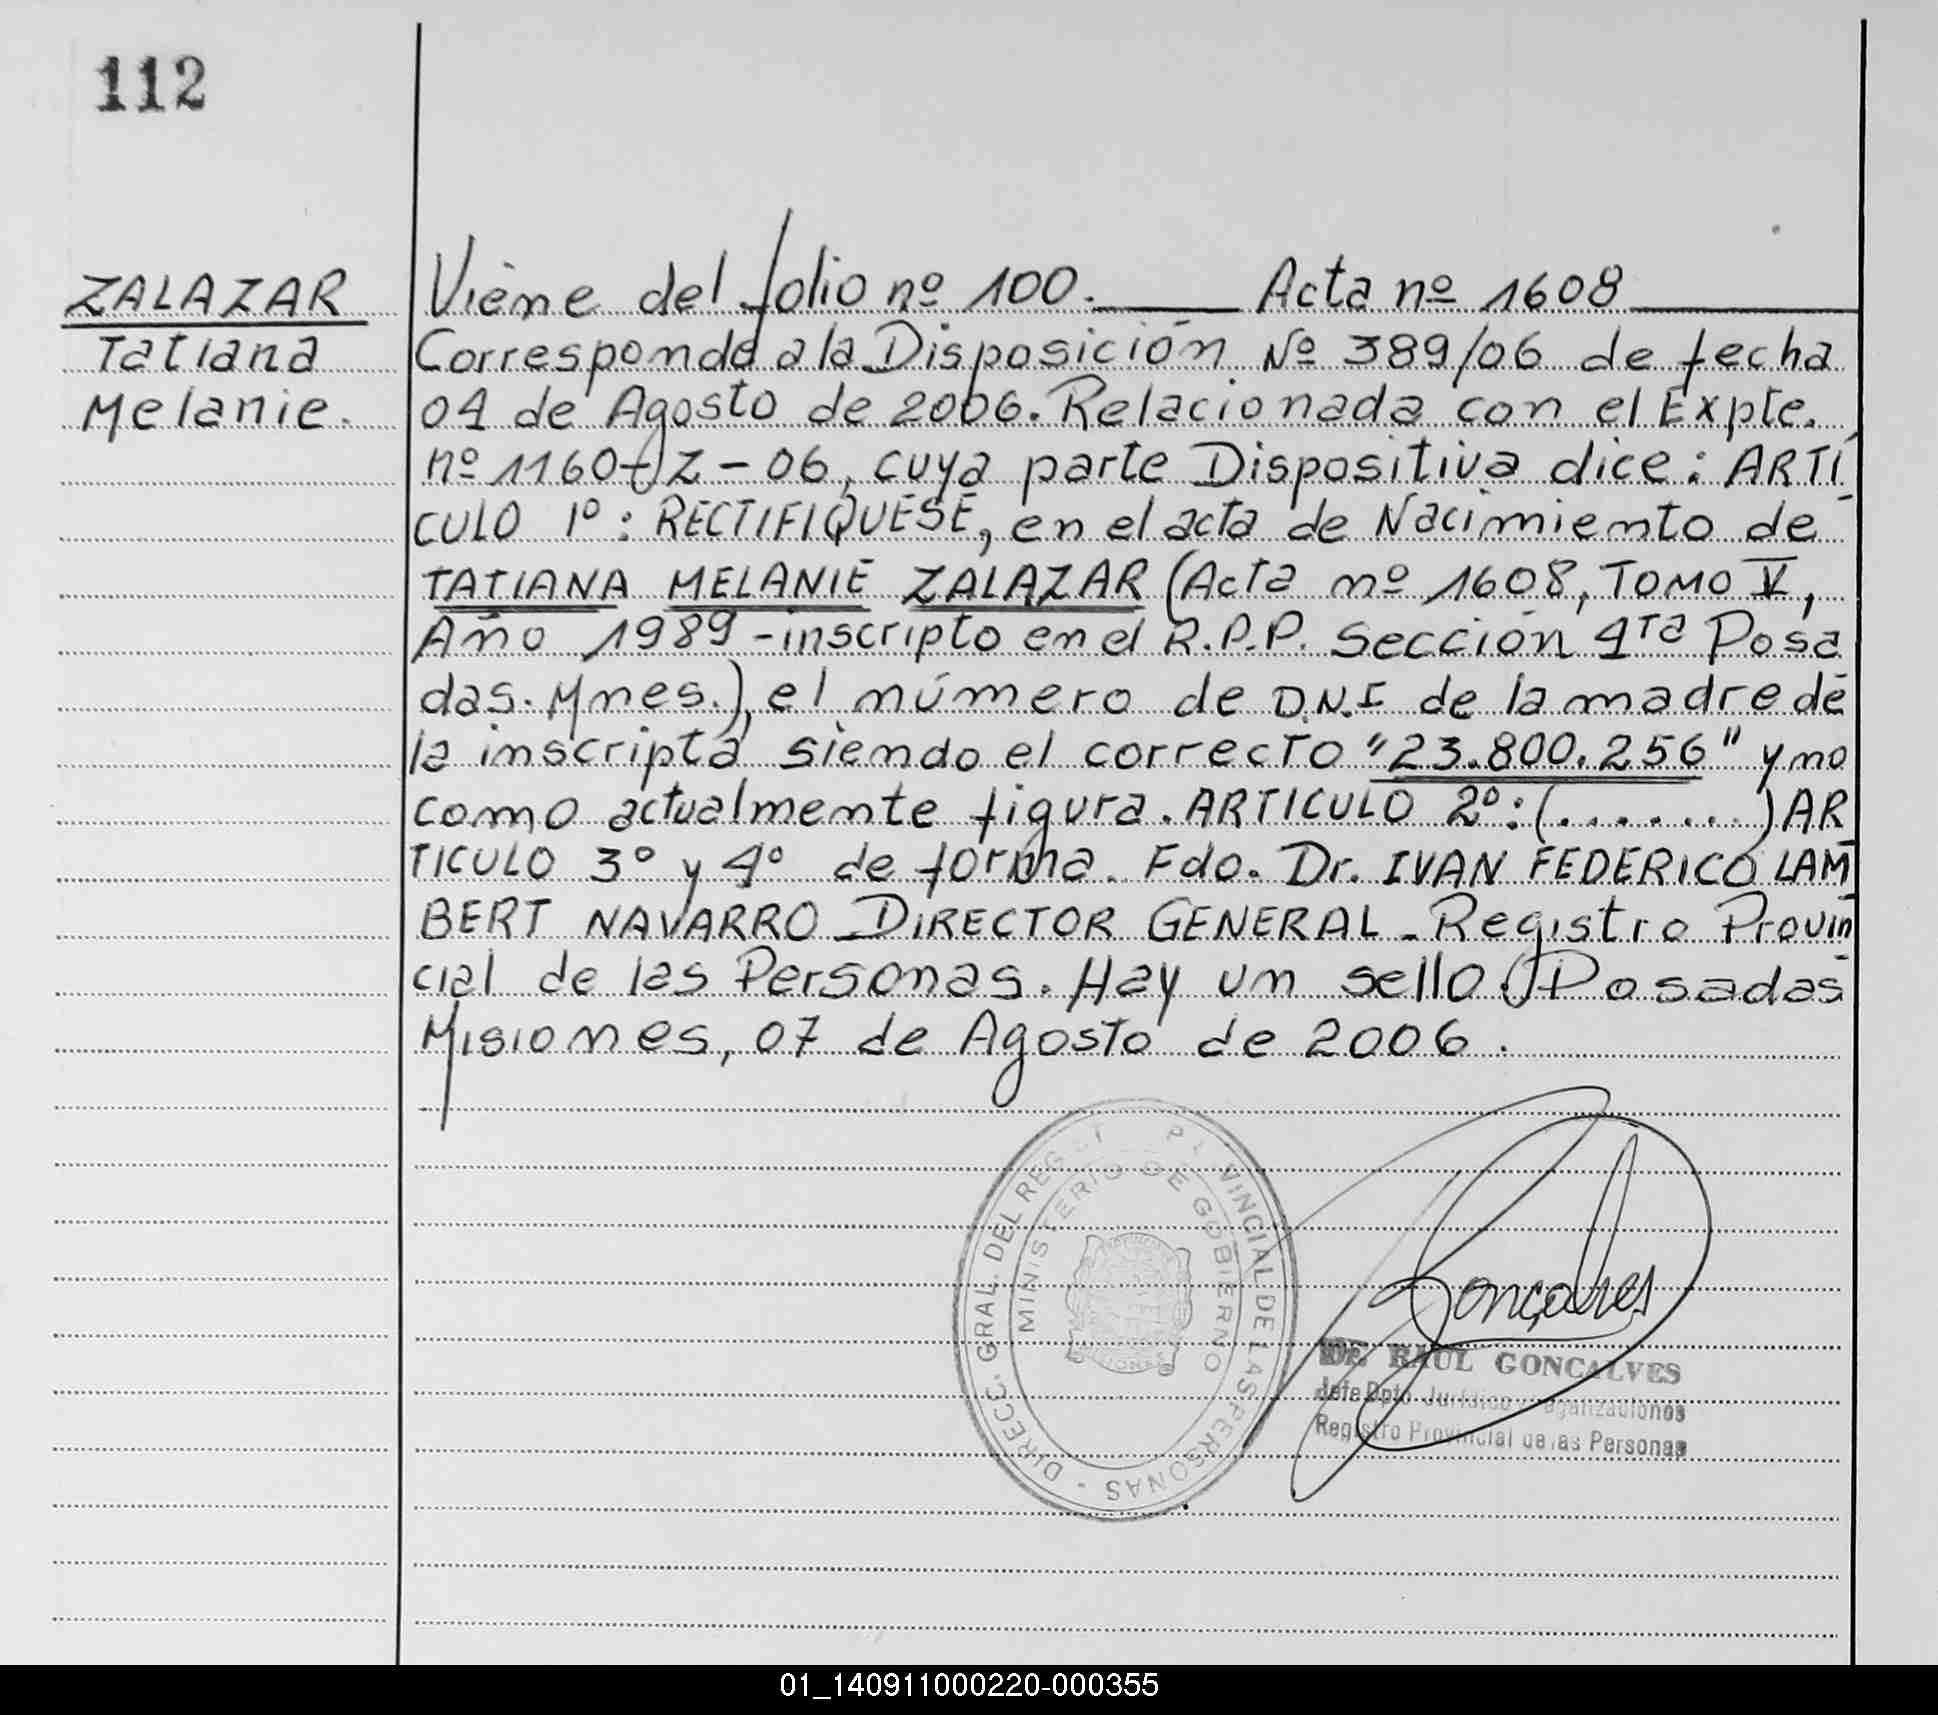 112
ZALAZAR
Tatiana
Melanie.
Viene del folio nº 100. Acta nº 1608
Corresponde a la Disposición Nº 389/06 de fecha
04 de Agosto de 2006. Relacionada con el Expte.
nº 1160-Z-06, cuya parte Dispositiva dice: ARTÍ
CULO 1º: RECTIFIQUESE, en el acta de Nacimiento de
TATIANA MELANIE ZALAZAR (Acta nº 1608, TOMO V,
Año 1989 - inscripto en el R.P.P. Sección 4ta Posa
das. Mnes.), el número de D.N.I de la madre de
la inscripta siendo el correcto "23.800.256" y no
como actualmente figura. ARTICULO 2º: (........) AR
TICULO 3º y 4º de forma. Fdo. Dr. IVAN FEDERICO LAM
BERT NAVARRO DIRECTOR GENERAL - Registro Provin
cial de las Personas. Hay un sello. Posadas
Misiones, 07 de Agosto de 2006.
DIRECC. GRAL. DEL REG PROVINCIAL DE LAS PERSONAS -
MINISTERIO DE GOBIERNO
Gonçalves
Dr. RAUL GONCALVES
Jefe Dpto Jurídico y Legalizaciones
Registro Provincial de las Personas
01_140911000220-000355